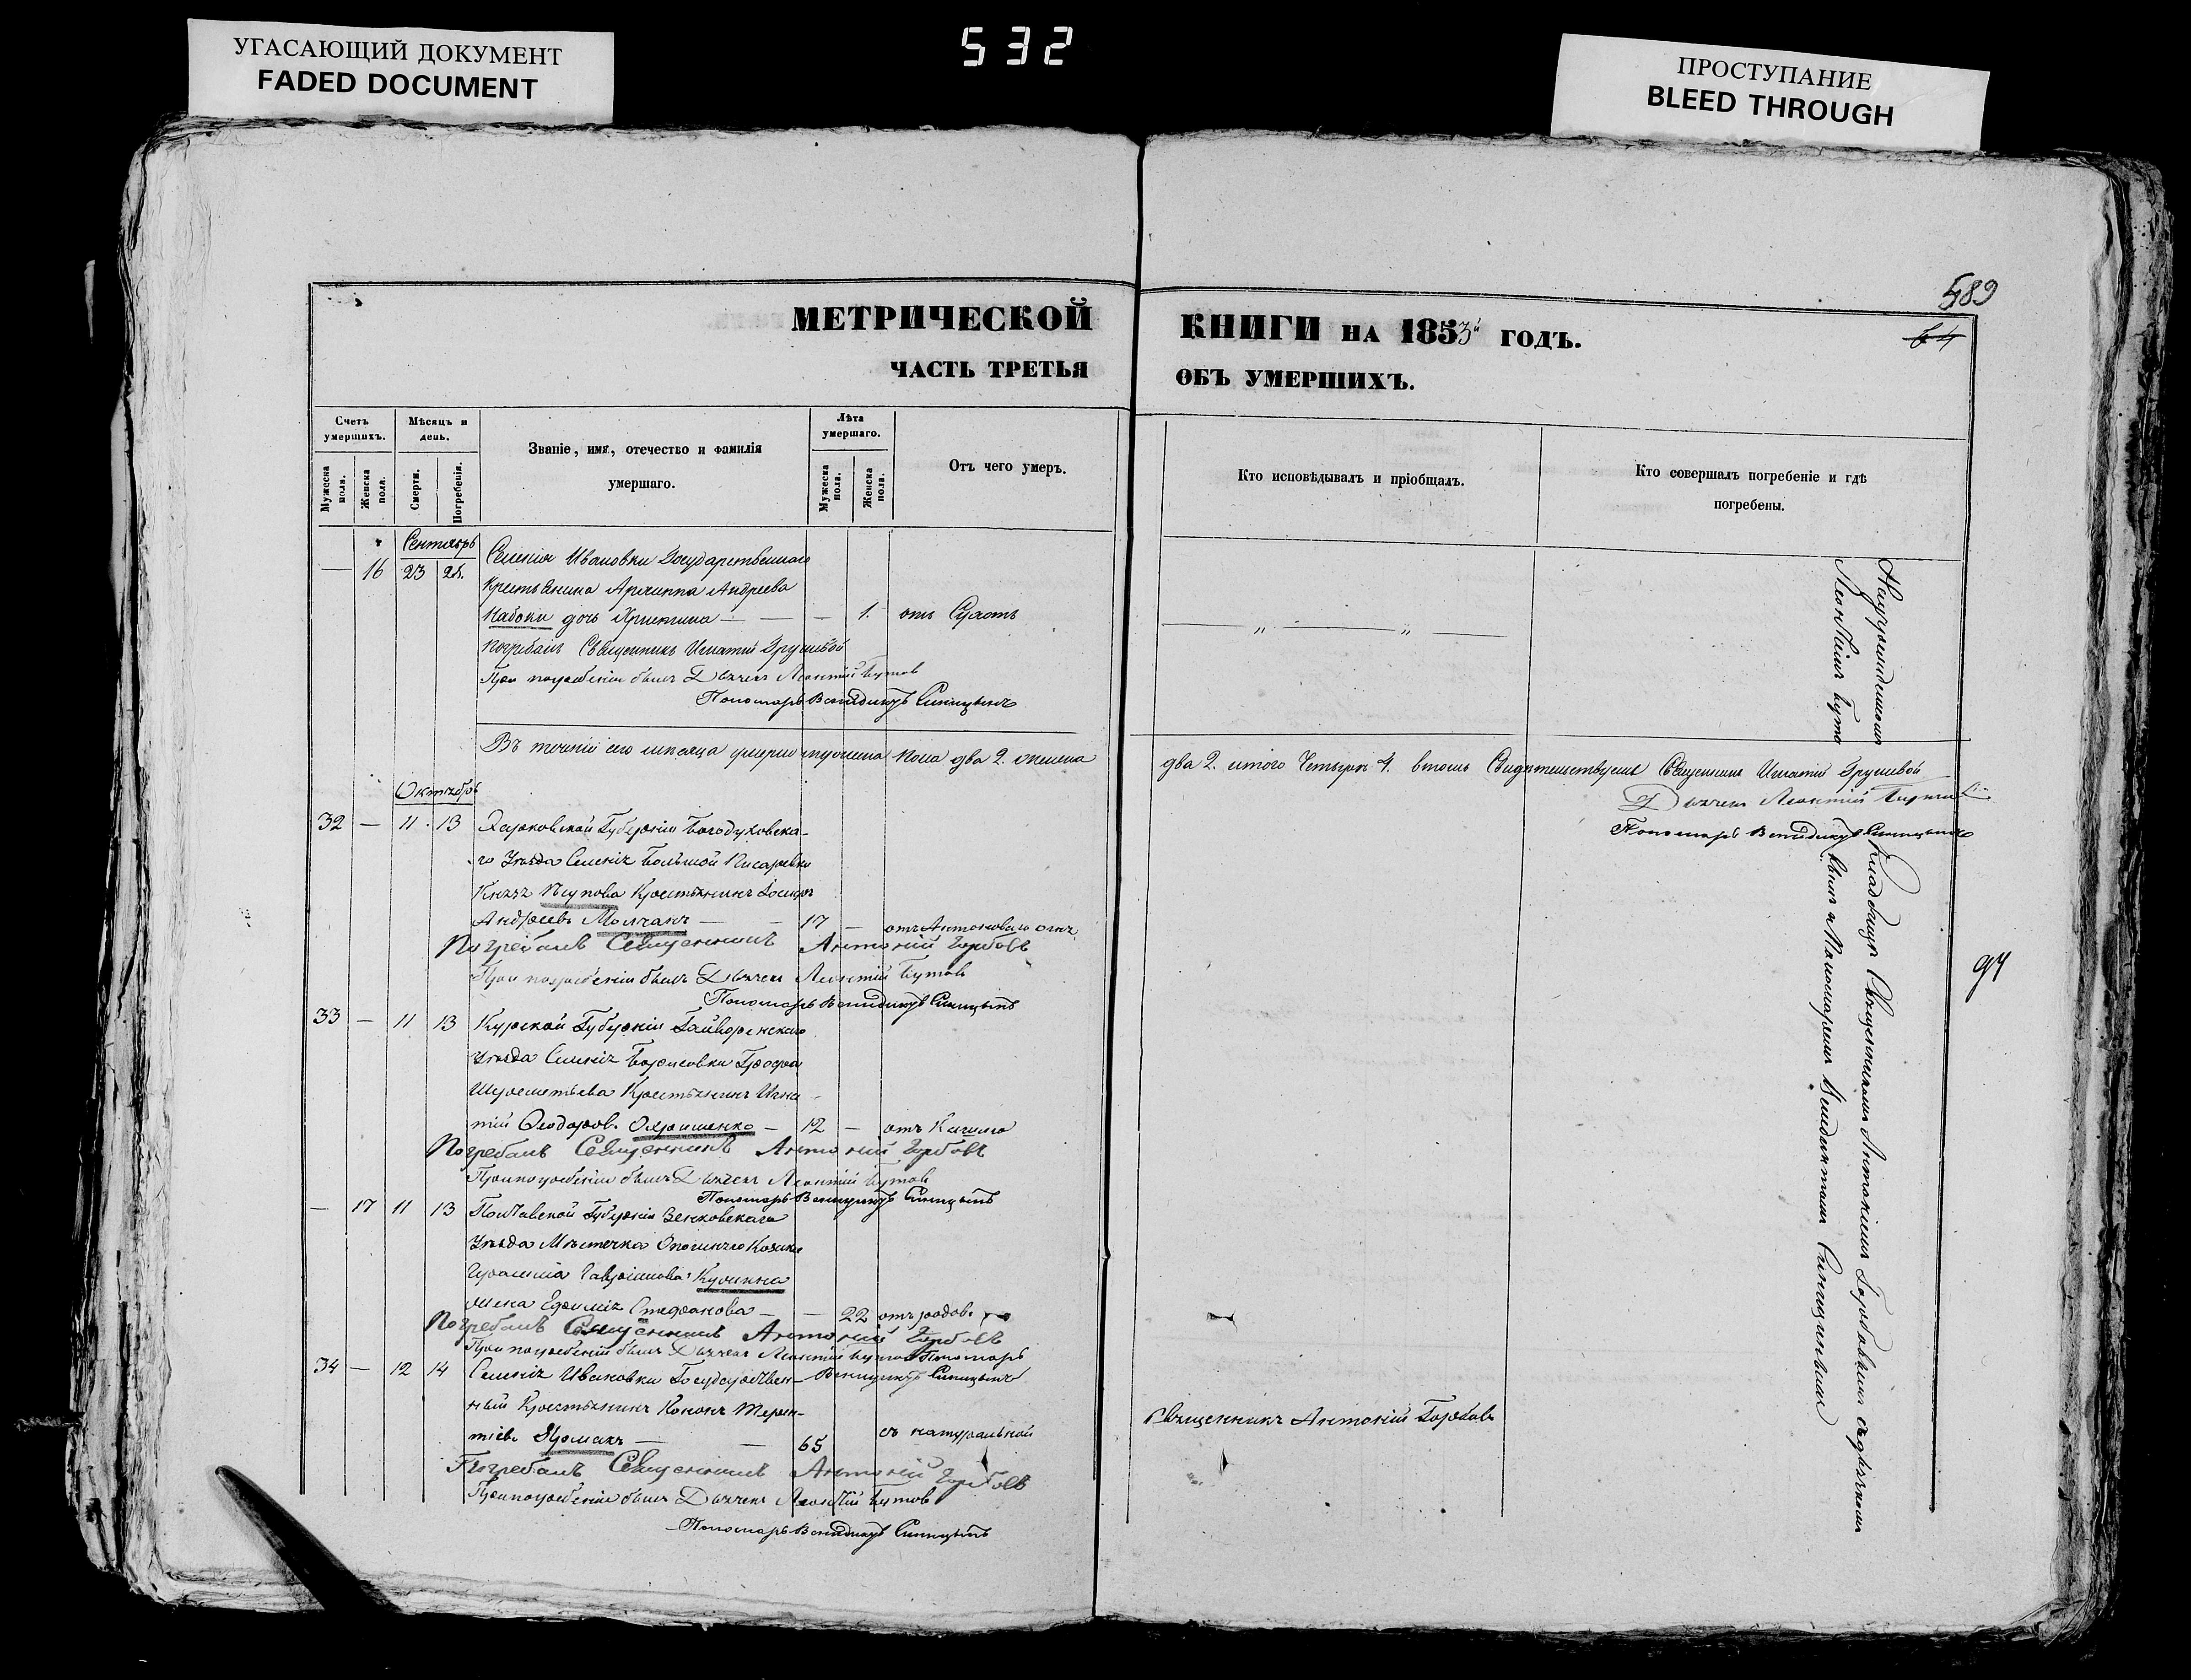 УГАСАЮЩИЙ ДОКУМЕНТ
FADED DOCUMENT
532
ПРОСТУПАНИЕ
BLEED THROUGH
589
64
МЕТРИЧЕСКОЙ КНИГИ НА 1853й ГОДЪ.
ЧАСТЬ ТРЕТЬЯ ОБЪ УМЕРШИХЪ.
Счетъ умершихъ.
Мужеска пола.
Женска пола.
Мѣсяцъ и день.
Смерти.
Погребенія.
Званіе, имя, отечество и фамилія умершаго.
Лѣта умершаго.
Мужеска пола.
Женска пола.
Отъ чего умеръ.
Кто исповѣдывалъ и пріобщалъ.
Кто совершалъ погребеніе и гдѣ погребены.
Сентябрь
— 16 23 25. Селенія Ивановки Государственнаго
Крестьянина Архиппа Андреева
Набоки дочь Христина — — 1. отъ
Погребалъ Священникъ Игнатій
При погребеніи былъ Дьячекъ Леонтій Бутов
Пономарь Венедиктъ Синицынъ
Въ теченіи сего месяца умерло мужеска пола два 2. женска два 2. итого четыре 4. в томъ Свидетельствуемъ Священникъ Игнатій
Дьячекъ Леонтій Бутовъ
Пономарь Венедиктъ Синицынъ
Октябрь
32 — 11 13 Харьковской Губерніи Богодуховска-
го Уѣзда Селенія Большой Писаревки
Князя Крестьянинъ
Андреевъ Молчанъ — — 17 — отъ Антоноваго огня
Погребалъ Священникъ Антоній Горбовъ
При погребеніи былъ Дьячекъ Леонтій Бутовъ
Пономарь Венедиктъ Синицынъ
33 — 11 13 Курской Губерніи Гайворонскаго
Уѣзда Селенія Борисовки Графа
Шереметьева Крестьянинъ Игна-
тій Феодоровъ — 12 — отъ Кашлю
Погребалъ Священникъ Антоній Горбовъ
При погребеніи былъ Дьячекъ Леонтій Бутовъ
Пономарь Венедиктъ Синицынъ
— 17 11 13 Полтавской Губерніи Зенковскаго
Уѣзда Мѣстечка Казака
Гавріилова
жена Ефимія Стефанова — — 22 отъ родовъ
Погребалъ Священникъ Антоній Горбовъ
При погребеніи былъ Дьячекъ Леонтій Бутовъ Пономарь
Венедиктъ Синицынъ
34 — 12 14 Селенія Ивановки Государствен-
ный Крестьянинъ Кононъ Терен-
тіевъ — — 65 натуральной
Священникъ Антоній Горбовъ
Погребалъ Священникъ Антоній Горбовъ
При погребеніи былъ Дьячекъ Леонтій Бутовъ
Пономарь Венедиктъ Синицынъ
кладбищѣ Священникомъ Антоніемъ Горбовымъ съ дьячкомъ
Леонтіемъ Буто
вымъ и Пономаремъ Венедиктомъ Синицынымъ
94